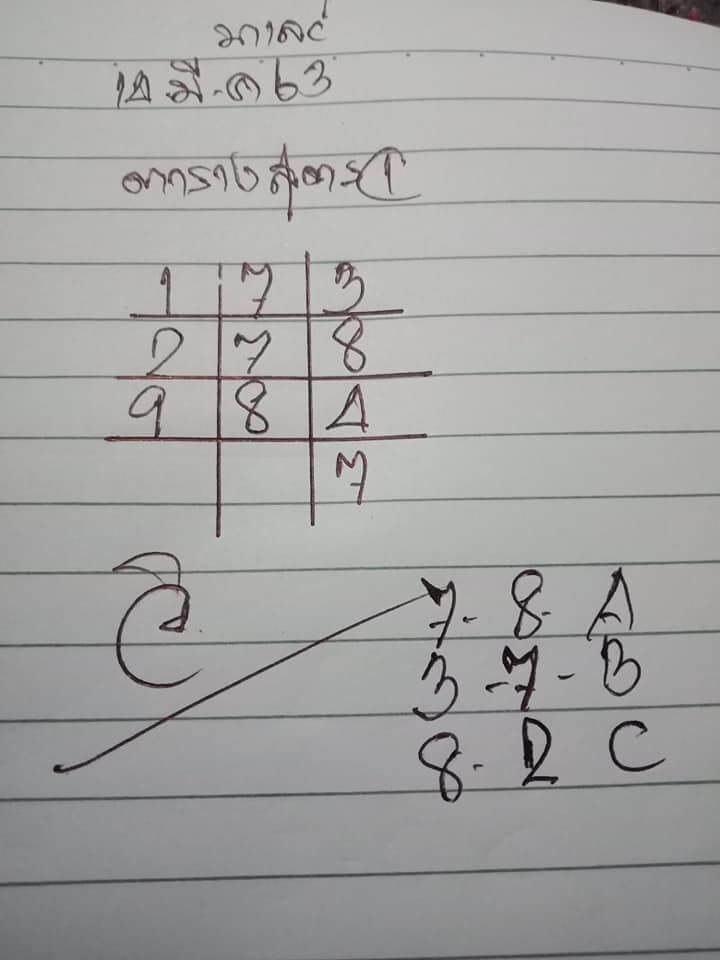 มาเลย์
12 มี.ค 63
ตารางสูตร 1
1 7 3
2 7 8
9 8 A
7
7-8-A
3-7-B
8-2 C